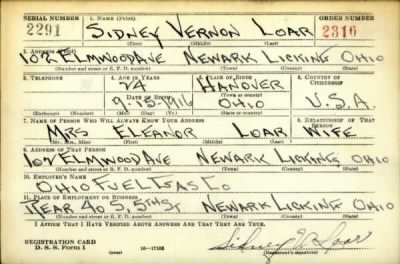 SERIAL NUMBER 1. NAME (Print) ORDER NUMBER
2291 SIDNEY VERNON LOAR 2316
(First) (Middle) (Last)
2. ADDRESS (Print)
102 ELMWOOD AVE NEWARK LICKING OHIO
(Number and street or R. F. D. number) (Town) (County) (State)
3. TELEPHONE 4. AGE IN YEARS 5. PLACE OF BIRTH 6. COUNTRY OF CITIZENSHIP
24 HANOVER
DATE OF BIRTH (Town or county)
9-15-1916 OHIO U.S.A.
(Exchange) (Number) (Mo.) (Day) (Yr.) (State or country)
7. NAME OF PERSON WHO WILL ALWAYS KNOW YOUR ADDRESS 8. RELATIONSHIP OF THAT PERSON
MRS ELEANOR LOAR WIFE
(Mr., Mrs., Miss) (First) (Middle) (Last)
9. ADDRESS OF THAT PERSON
102 ELMWOOD AVE NEWARK LICKING OHIO
(Number and street or R. F. D. number) (Town) (County) (State)
10. EMPLOYER'S NAME
OHIO FUEL GAS CO
11. PLACE OF EMPLOYMENT OR BUSINESS
REAR 40 S. 5TH ST NEWARK LICKING OHIO
(Number and street or R. F. D. number) (Town) (County) (State)
I AFFIRM THAT I HAVE VERIFIED ABOVE ANSWERS AND THAT THEY ARE TRUE.
REGISTRATION CARD
D. S. S. Form 1 (over) 16-17105 Sidney V. Loar
(Registrant's signature)